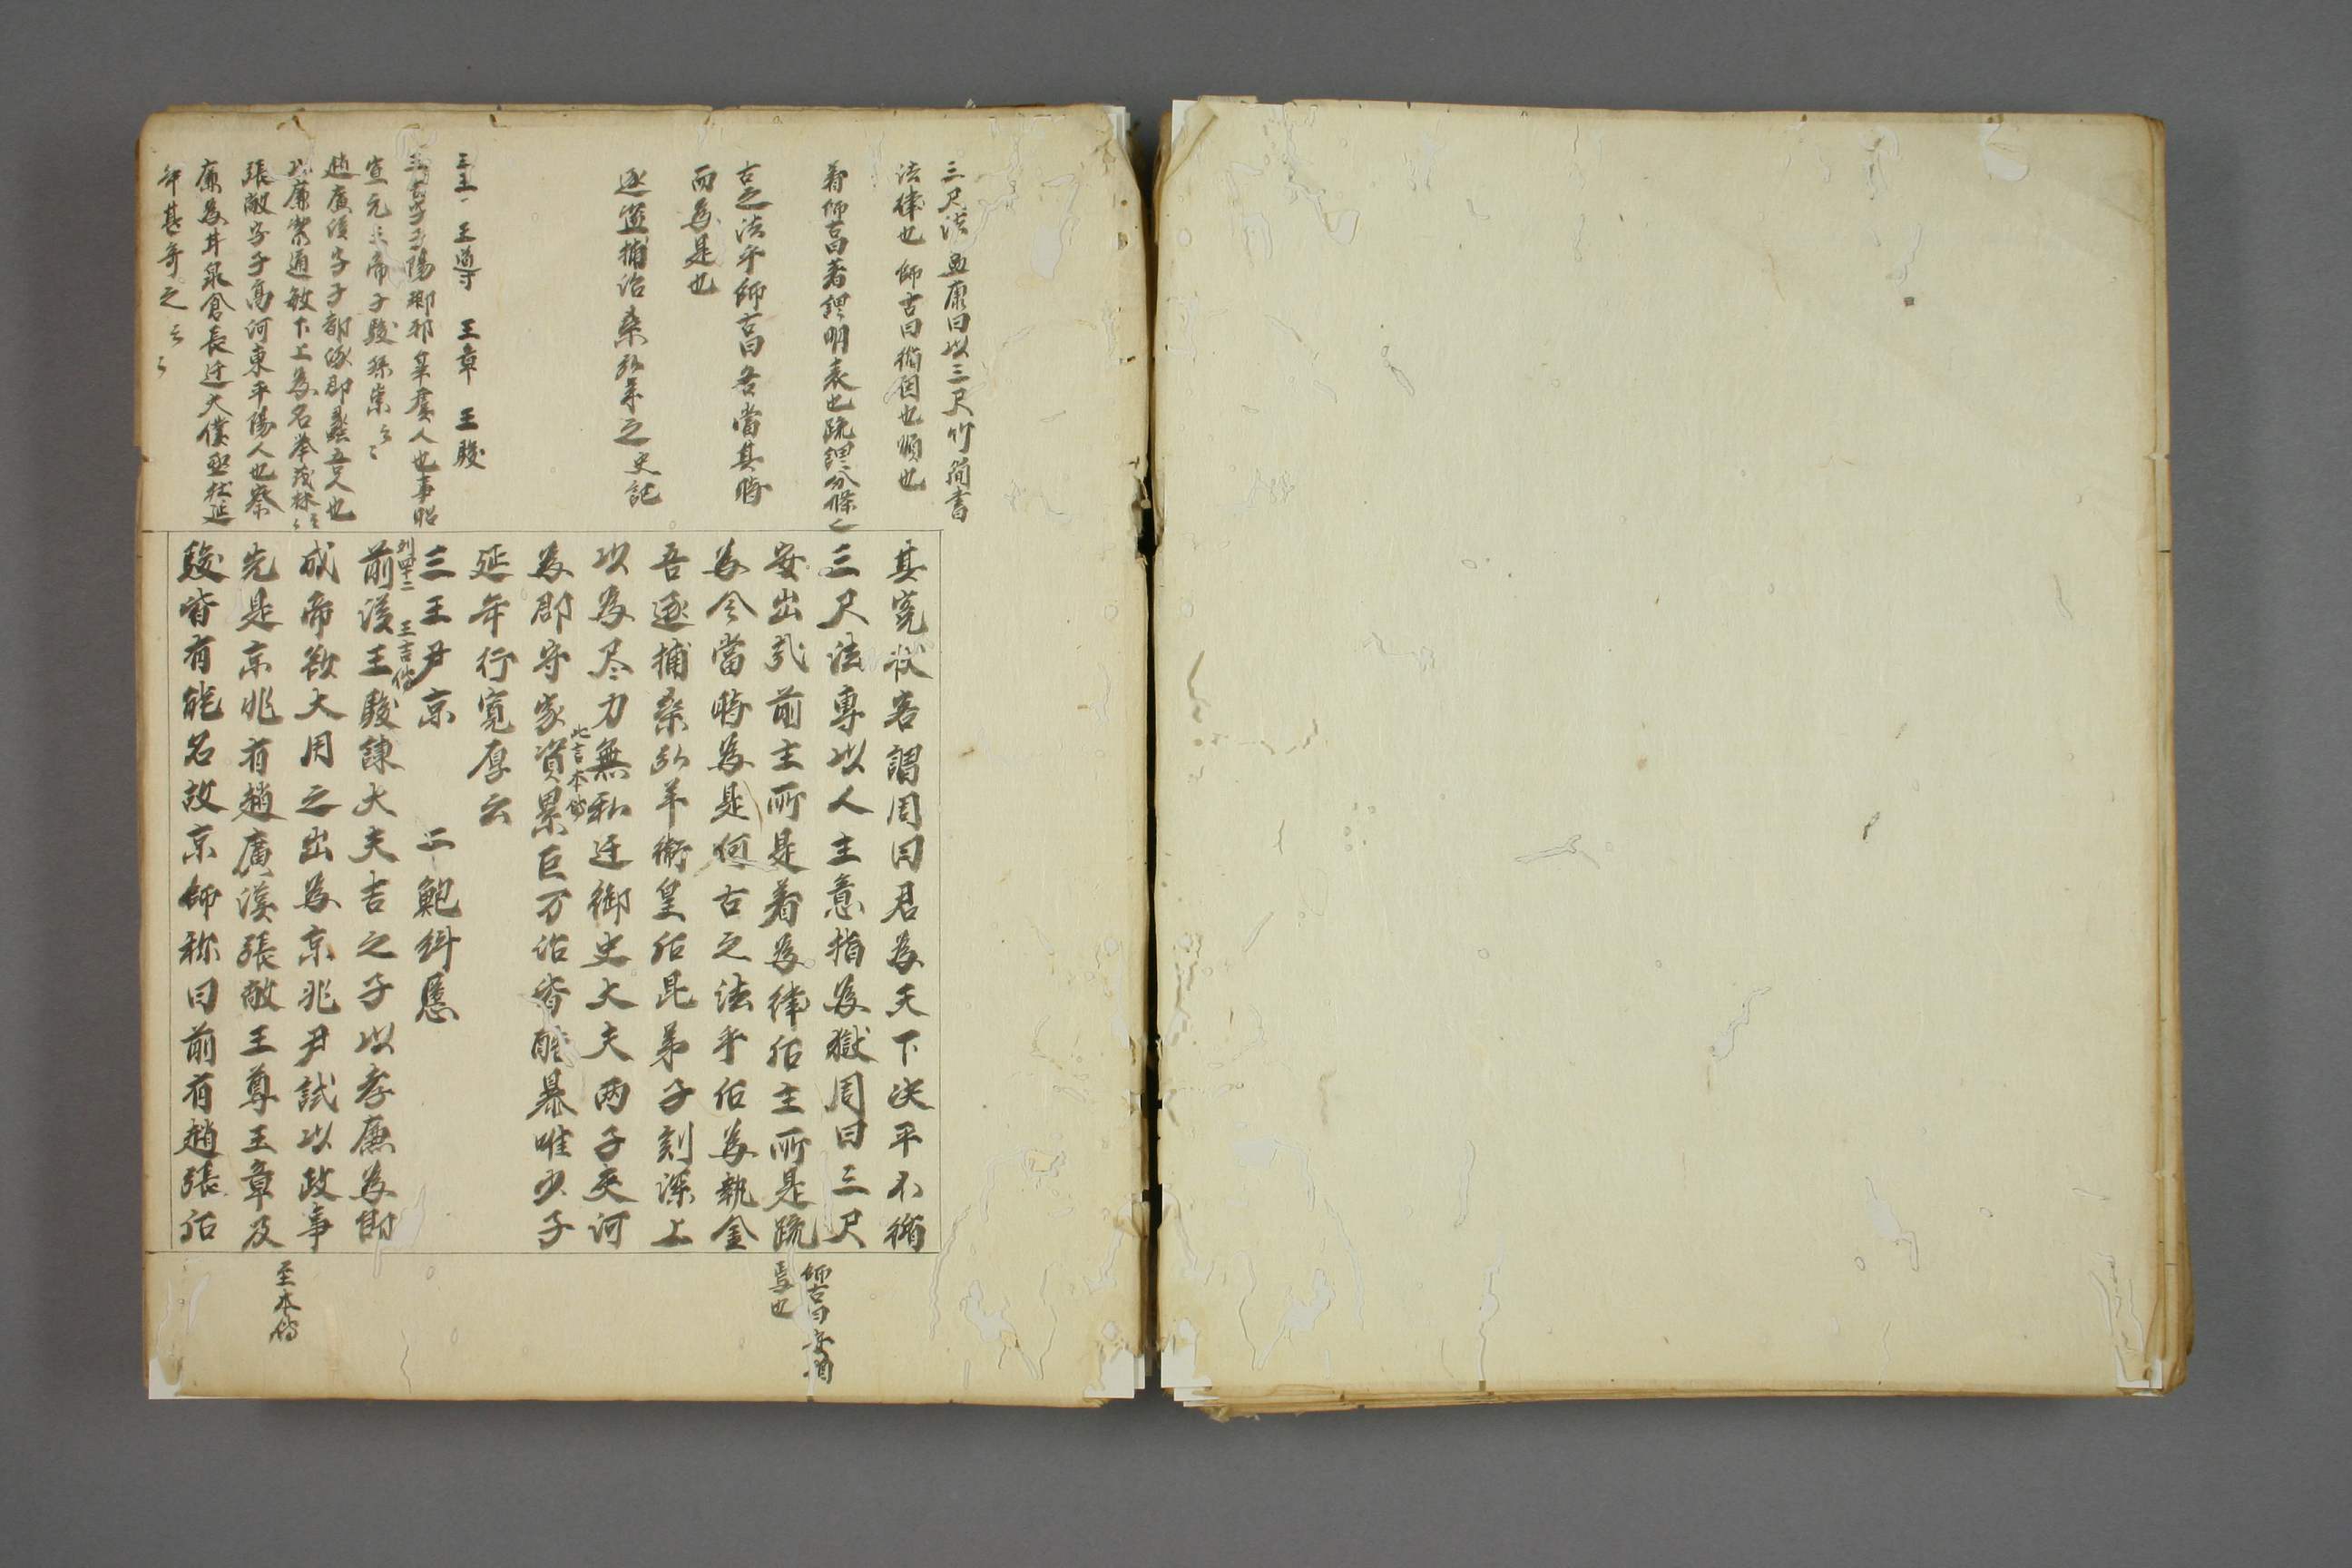 三尺法 孟康曰以三尺竹簡書
法律也 師古曰循因也順也
著師古曰著謂明表也疏謂分條之
古之法乎師古曰各當其時
而為是也
逐盗捕治桑弘羊之史記
三王 王尊 王章 王駿
王吉字子陽瑯邪皐虞人也事昭
宣元三帝子駿孫崇云々
趙廣漢字子都涿郡蠡吾人也
以廉潔通敏下士為名挙茂材云々
張敞字子高河東平陽人也察
廉為甘泉倉長迁大僕丞杜延
年甚奇之云々
其寃状客謂周曰君為天下决平不循
三尺法專以人主意指為獄周曰三尺
安出哉前主所是著為律后主所是疏
為令當時為是何古之法乎后為執金
吾逐捕桑弘羊衛皇后昆弟子刻深上
以為尽力無私迁御史大夫两子夾河
為郡守家資累巨万治皆酷暴唯少子
此吉本傳
延年行寛厚云
三王尹京 二鮑糾慝
列四十二 王吉傳
前漢王駿諫大夫吉之子以孝廉為郎
成帝欲大用之出為京兆尹試以政事
先是京兆有趙廣漢張敞王尊王章及
駿皆有能名故京師称曰前有趙張后
師古曰安猶
焉也
至本傳